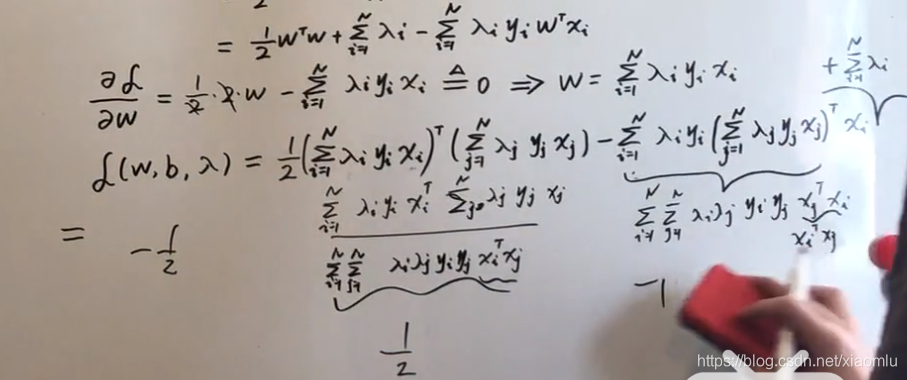 = 1/2 wᵀw + Σᵢ₌₁ᴺ λᵢ − Σᵢ₌₁ᴺ λᵢ yᵢ wᵀxᵢ
∂ℒ/∂w = 1/2 · 2 · w − Σᵢ₌₁ᴺ λᵢ yᵢ xᵢ ≜ 0 ⇒ w = Σᵢ₌₁ᴺ λᵢ yᵢ xᵢ
+ Σᵢ₌₁ᴺ λᵢ
ℒ(w, b, λ) = 1/2 (Σᵢ₌₁ᴺ λᵢ yᵢ xᵢ)ᵀ (Σⱼ₌₁ᴺ λⱼ yⱼ xⱼ) − Σᵢ₌₁ᴺ λᵢ yᵢ (Σⱼ₌₁ᴺ λⱼ yⱼ xⱼ)ᵀ xᵢ
Σᵢ₌₁ᴺ λᵢ yᵢ xᵢᵀ Σⱼ₌₁ᴺ λⱼ yⱼ xⱼ
Σᵢ₌₁ᴺ Σⱼ₌₁ᴺ λᵢ λⱼ yᵢ yⱼ xⱼᵀ xᵢ
xᵢᵀ xⱼ
= − 1/2
Σᵢ₌₁ᴺ Σⱼ₌₁ᴺ λᵢ λⱼ yᵢ yⱼ xᵢᵀ xⱼ
−1
1/2
https://blog.csdn.net/xiaomlu